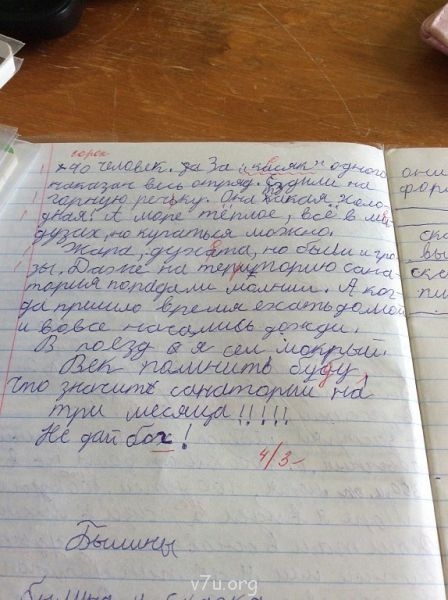 сорок
40 человек. да За „касяк" одного
наказан весь отряд. Ездили на
горную речьку. Она какая холо-
дная! А мере тёплое, всё в ме
дузах, но купаться можно.
Жара, духата, но были и гро
зы. Даже на территорию сана-
тория попадали молнии. А ког-
да пришло время ехать домой
и вовсе начались дожди.
В поезд я сел мокрый.
Век помнить буду,
что значить санаторий на
три месяца!!!!!
Не дай бох!
4/3-
Былины
былина и сказка
они
фор
ска
вы
ске
пи
v7u.org